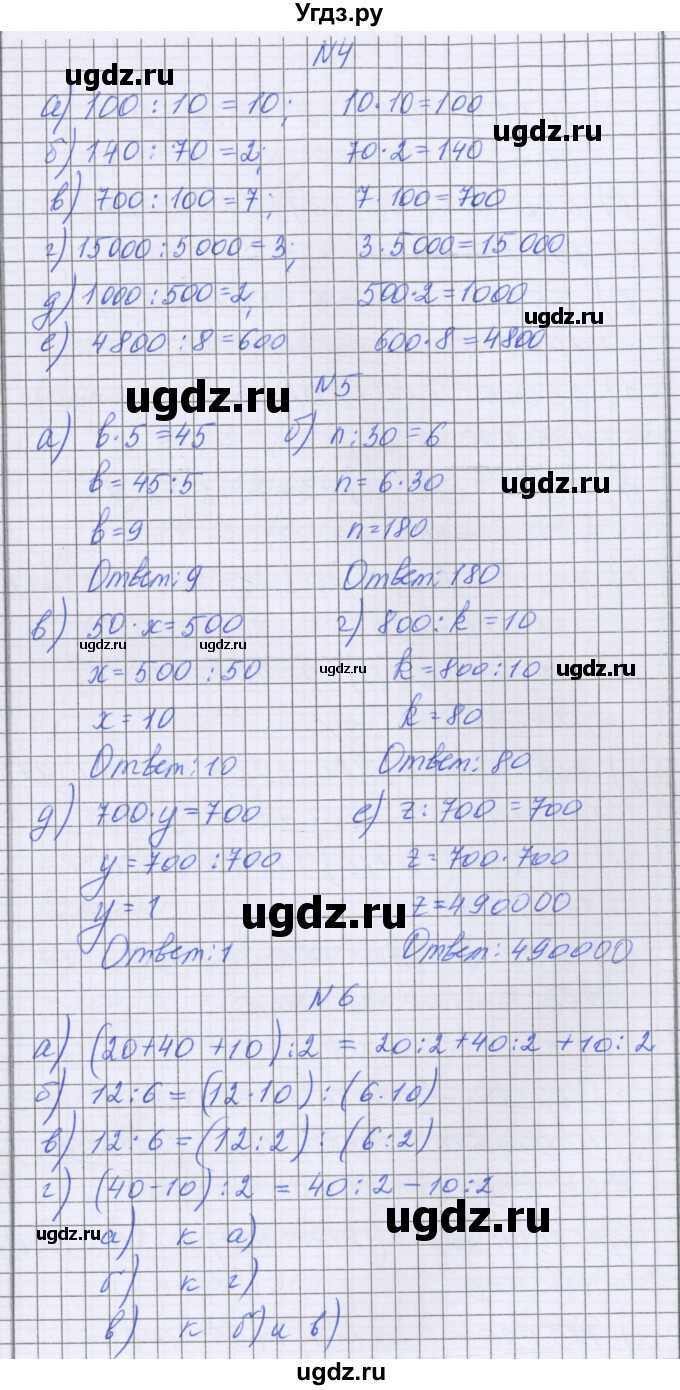 Угдз.ру
№4
ugdz.ru
а) 100 : 10 = 10; 10·10=100
ugdz.ru
б) 140 : 70 = 2; 70·2=140
в) 700 : 100 = 7; 7·100=700
г) 15000 : 5000 = 3; 3·5000=15000
д) 1000 : 500=2; 500·2=1000
ugdz.ru
е) 4800 : 8=600 600·8=4800
№5
ugdz.ru
а) b·5=45 б) n:30=6
b=45:5 n=6·30
ugdz.ru
b=9 n=180
Ответ: 9 Ответ: 180
в) 50·x=500 г) 800:k=10
ugdz.ru ugdz.ru ugdz.ru ugdz.ru
x=500:50 k=800:10
x=10 k=80
Ответ: 10 Ответ: 80
д) 700·y=700 е) z:700=700
y=700:700 z=700·700
y=1 z=490000
ugdz.ru
Ответ: 1 Ответ: 490000
№6
а) (20+40+10):2 = 20:2+40:2+10:2
б) 12:6=(12·10):(6·10)
ugdz.ru
в) 12:6=(12:2):(6:2)
г) (40-10):2 = 40:2-10:2
ugdz.ru
ugdz.ru
а) к а)
б) к г)
в) к б) и в)
ugdz.ru